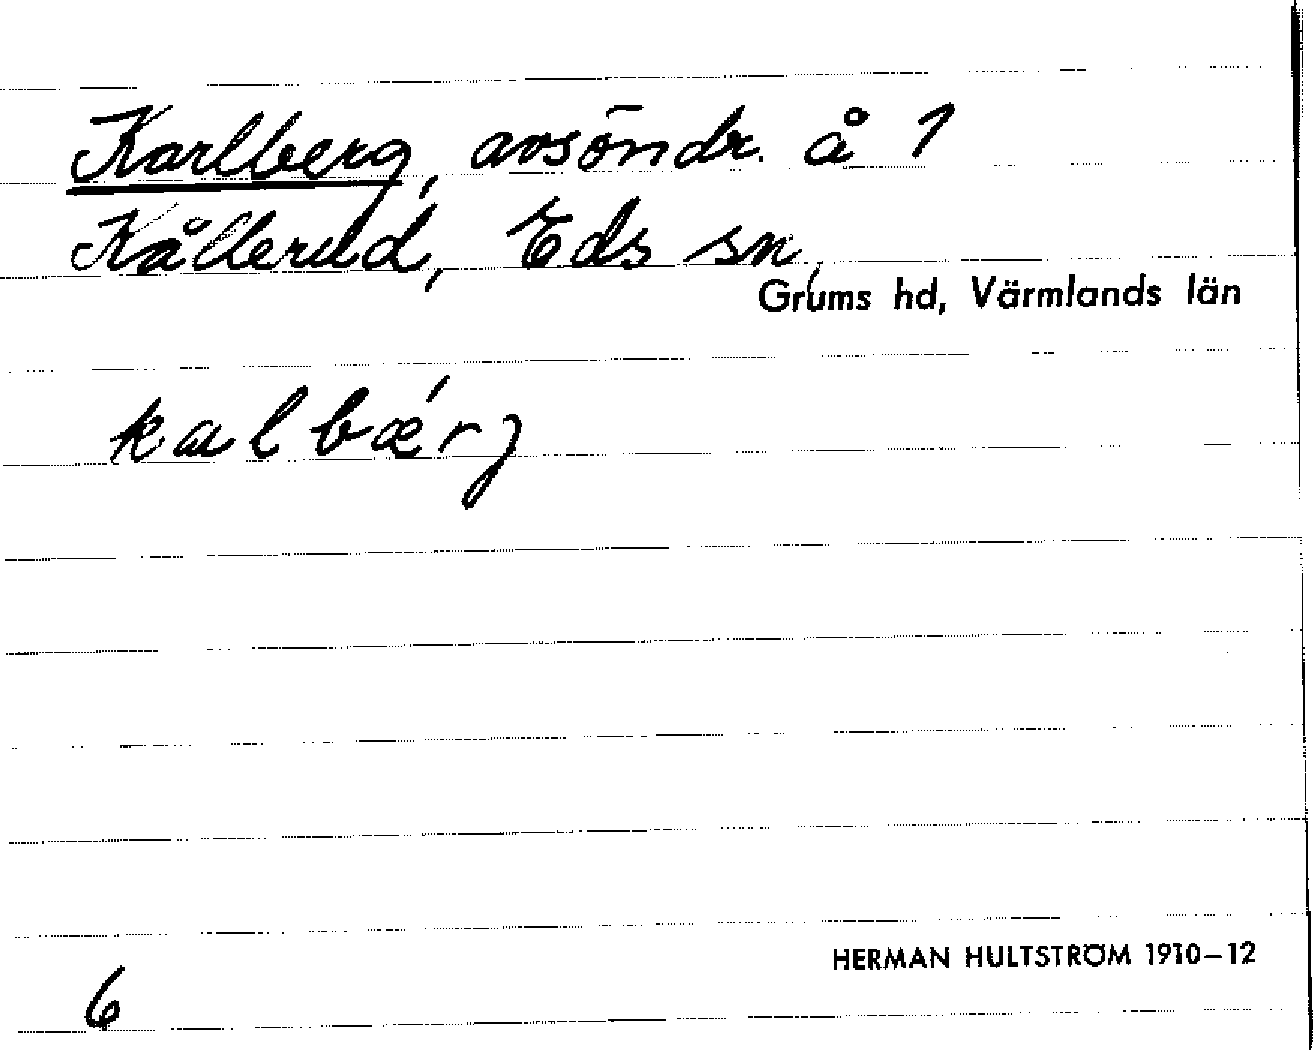 Karlberg, avsöndr. å 1
Kållerud, Eds sn,
Grums hd, Värmlands län
kalbǽrj
6
HERMAN HULTSTRÖM 1910–12